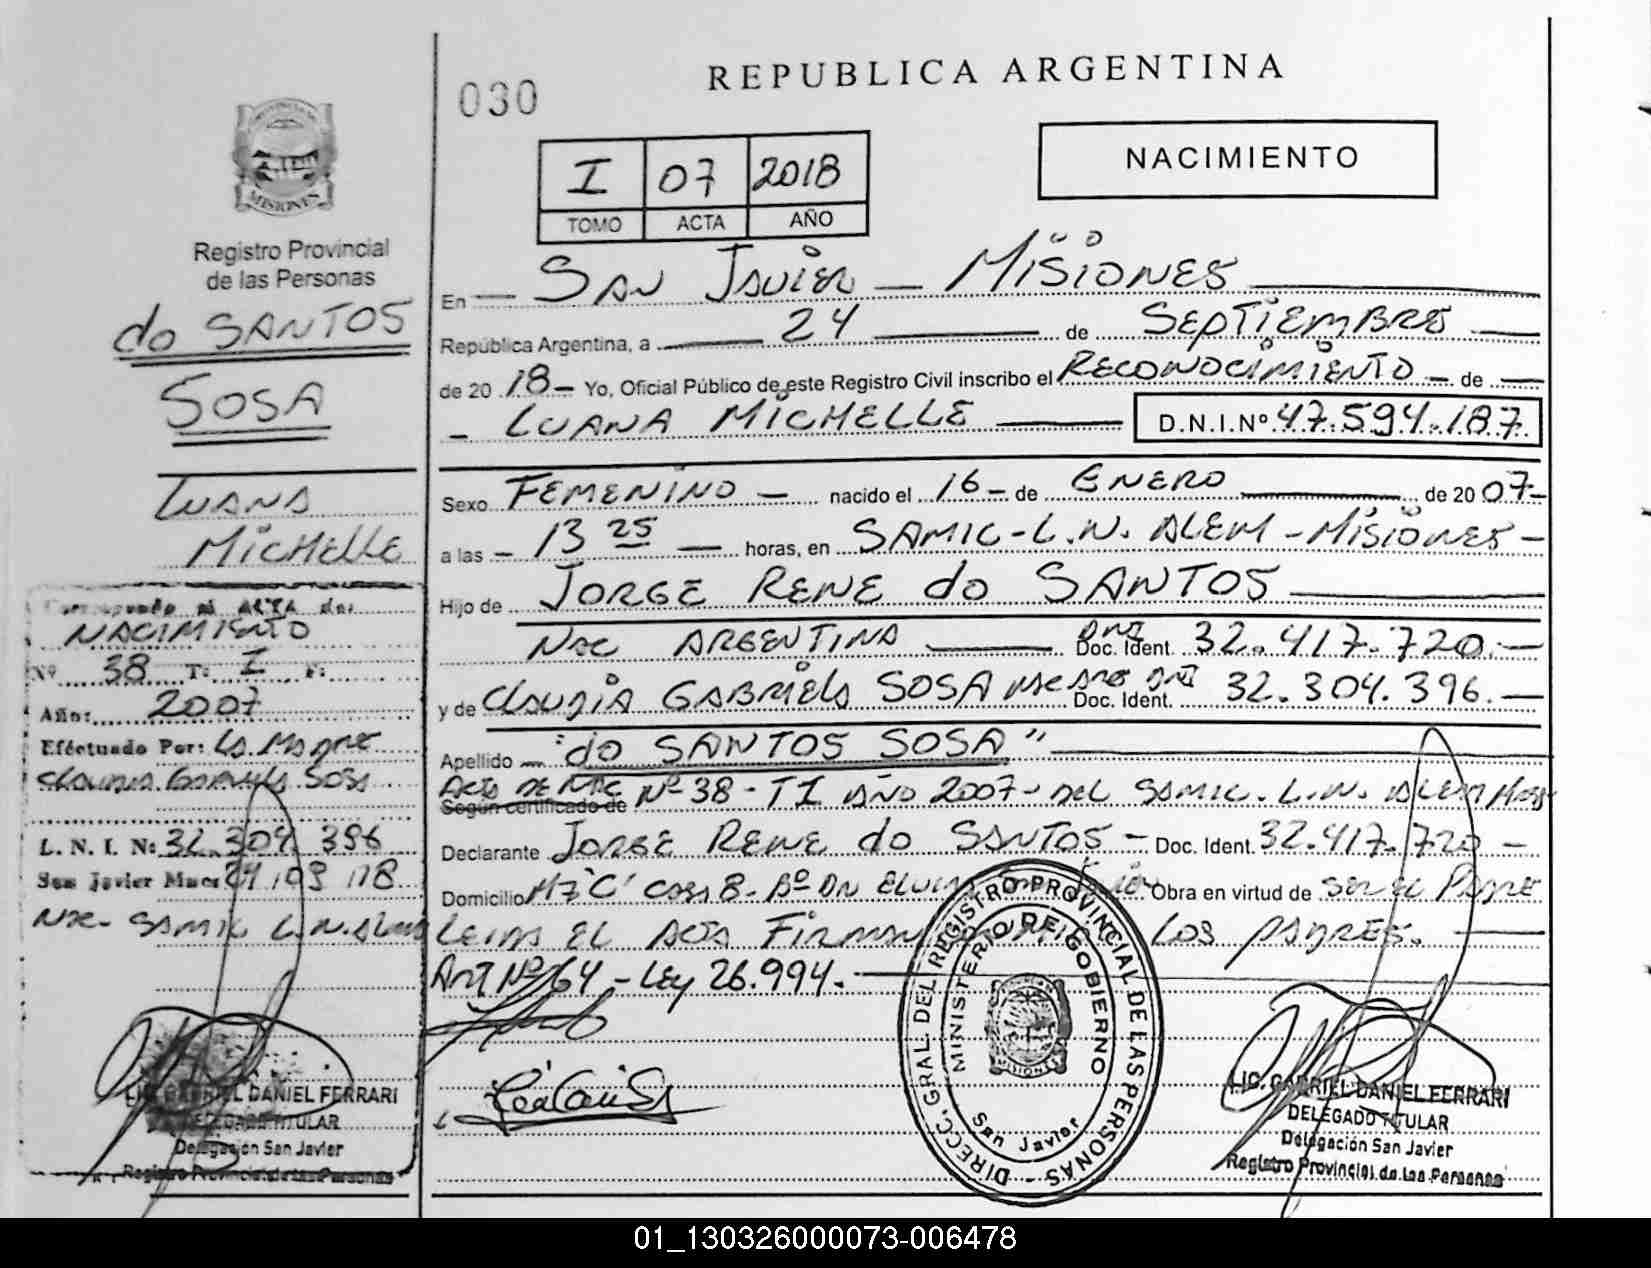 030
REPUBLICA ARGENTINA
I 07 2018
TOMO ACTA AÑO
NACIMIENTO
MISIONES
Registro Provincial
de las Personas
do SANTOS
SOSA
LUANA
MICHELLE
En SAN JAVIER - MISIONES
República Argentina, a 24 de SEPTIEMBRE
de 20 18 - Yo, Oficial Público de este Registro Civil inscribo el RECONOCIMIENTO - de
- LUANA MICHELLE D.N.I.Nº 47.594.187.
Sexo FEMENINO - nacido el 16 - de ENERO de 20 07 -
a las - 13 25 - horas, en SAMIC - L.N. ALEM - MISIONES -
Hijo de JORGE RENE do SANTOS
Nac ARGENTINA DNI Doc. Ident. 32.417.720.-
y de CLAUDIA GABRIELA SOSA Nac Arg DNI Doc. Ident. 32.304.396.-
Apellido - "do SANTOS SOSA"
Acta de Nac Nº 38 - T I AÑO 2007 - DEL SAMIC. L.N. ALEM Mnes
Según certificado de
Declarante JORGE RENE do SANTOS - Doc. Ident. 32.417.720 -
Domicilio Mz "C" Casa 8 - Bº Obra en virtud de SER EL PADRE
LEIDA EL ACTA FIRMAN LOS PADRES.
Art Nº 64 - Ley 26.994.-
al ACTA de:
NACIMIENTO
Nº 38 T: I F:
Año: 2007
Eféctuado Por: La Madre
Claudia Gabriela Sosa
L. N. I. Nº 32.304.396
San Javier Mnes 24/09/18
Nac - SAMIC L.N. Alem
LIC. GABRIEL DANIEL FERRARI
DELEGADO TITULAR
Delegación San Javier
Registro Provincial de las Personas
DIRECC. GRAL. DEL REGISTRO PROVINCIAL DE LAS PERSONAS -
MINISTERIO DE GOBIERNO
MISIONES
San Javier
LIC. GABRIEL DANIEL FERRARI
DELEGADO TITULAR
Delegación San Javier
Registro Provincial de las Personas
01_130326000073-006478